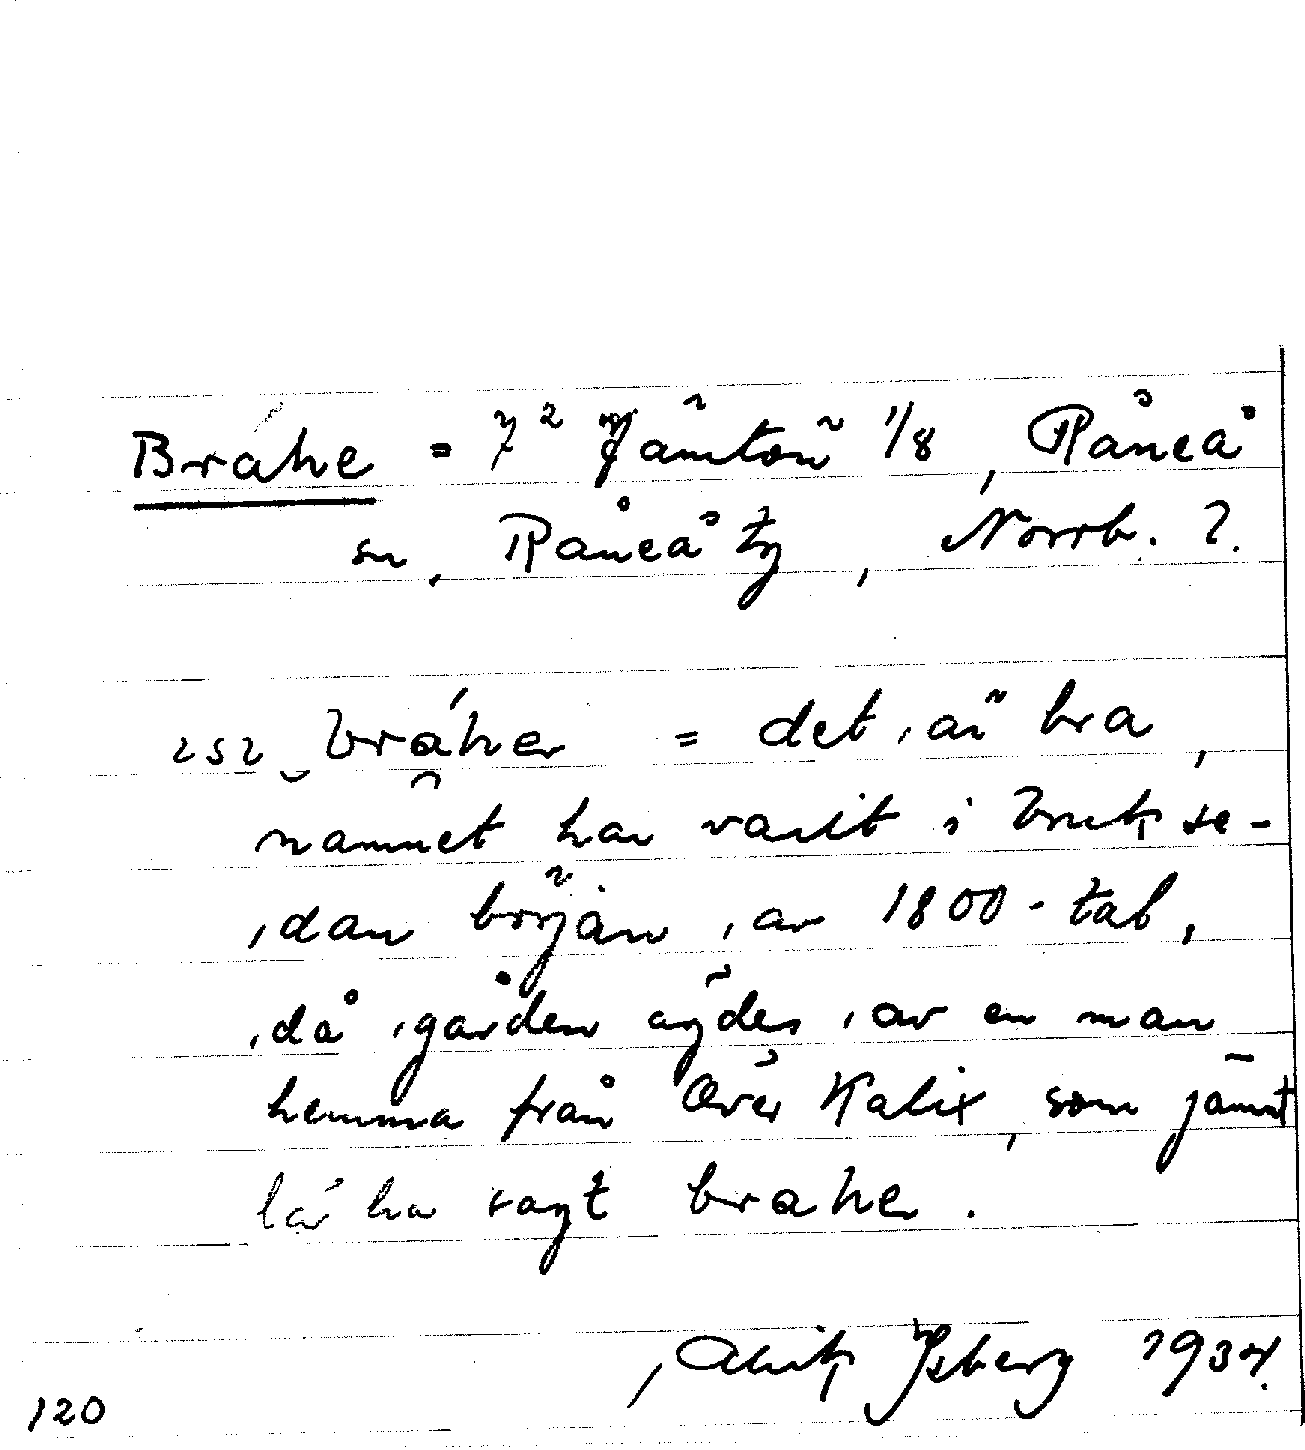 Bráhe = 7² Jämtön 1/8, Råneå
sn, Råneå tg, Norrb. ?
bráher = det är bra,
namnet har varit i bruk se-
dan början av 1800-tal,
då gården ägdes av en man
hemma från Över Kalix, som jämt
lä ha sagt brahe.
Alrik Ysberg 1934.
120